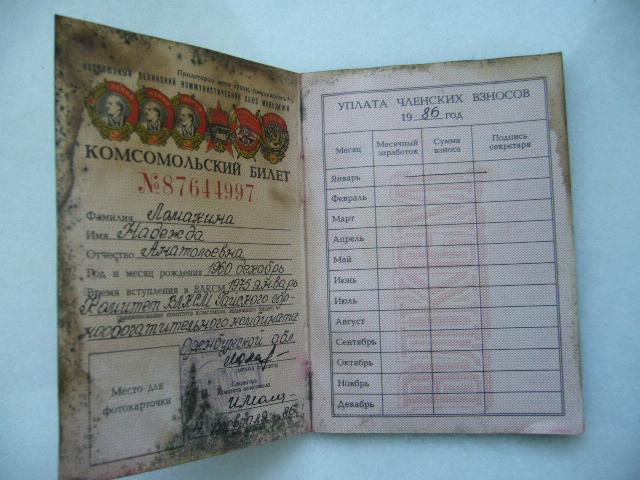 Пролетарии всех стран, соединяйтесь!
ВСЕСОЮЗНЫЙ ЛЕНИНСКИЙ КОММУНИСТИЧЕСКИЙ СОЮЗ МОЛОДЕЖИ
КОМСОМОЛЬСКИЙ БИЛЕТ
№87644997
Фамилия Ломакина
Имя Надежда
Отчество Анатольевна
Год и месяц рождения 1960 декабрь
Время вступления в ВЛКСМ 1975 январь
Комитет ВЛКСМ Гайского гор-
нообогатительного комбината
Оренбургской обл.
Секретарь
Место для
фотокарточки
4 февраля 86
УПЛАТА ЧЛЕНСКИХ ВЗНОСОВ
1986 год
Месяц Месячный заработок Сумма взноса Подпись секретаря
Январь
Февраль
Март
Апрель
Май
Июнь
Июль
Август
Сентябрь
Октябрь
Ноябрь
Декабрь
ВЛКСМ